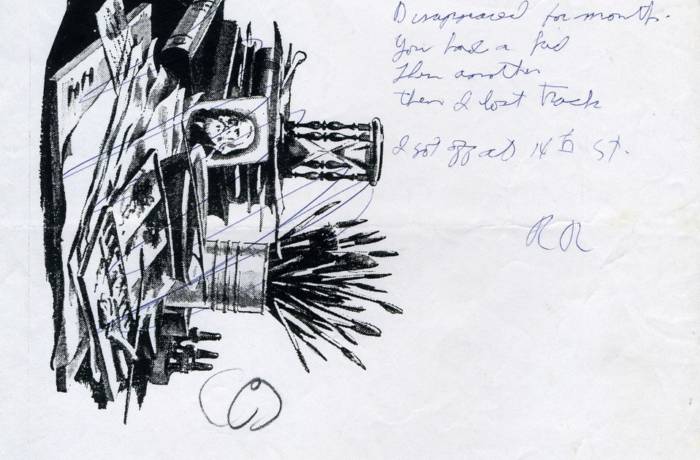 Disappeared for months.
You had a kid
Then another
then I lost track
I got off at 14th St.
RR